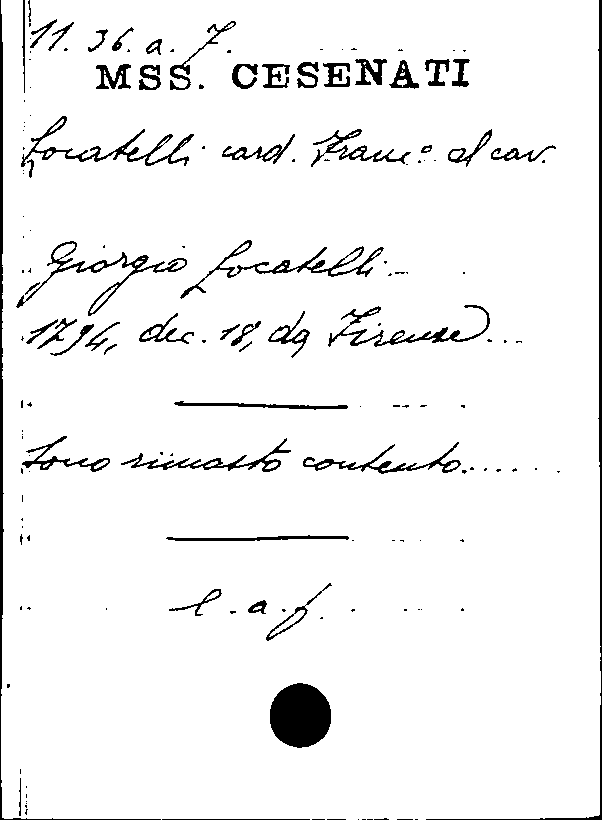 11. 36. a. 7.
MSS. CESENATI
Locatelli card. Franc.o al cav.
Giorgio Locatelli
1794, dec. 18, da Firenze...
Sono rimasto contento......
l. a. f.